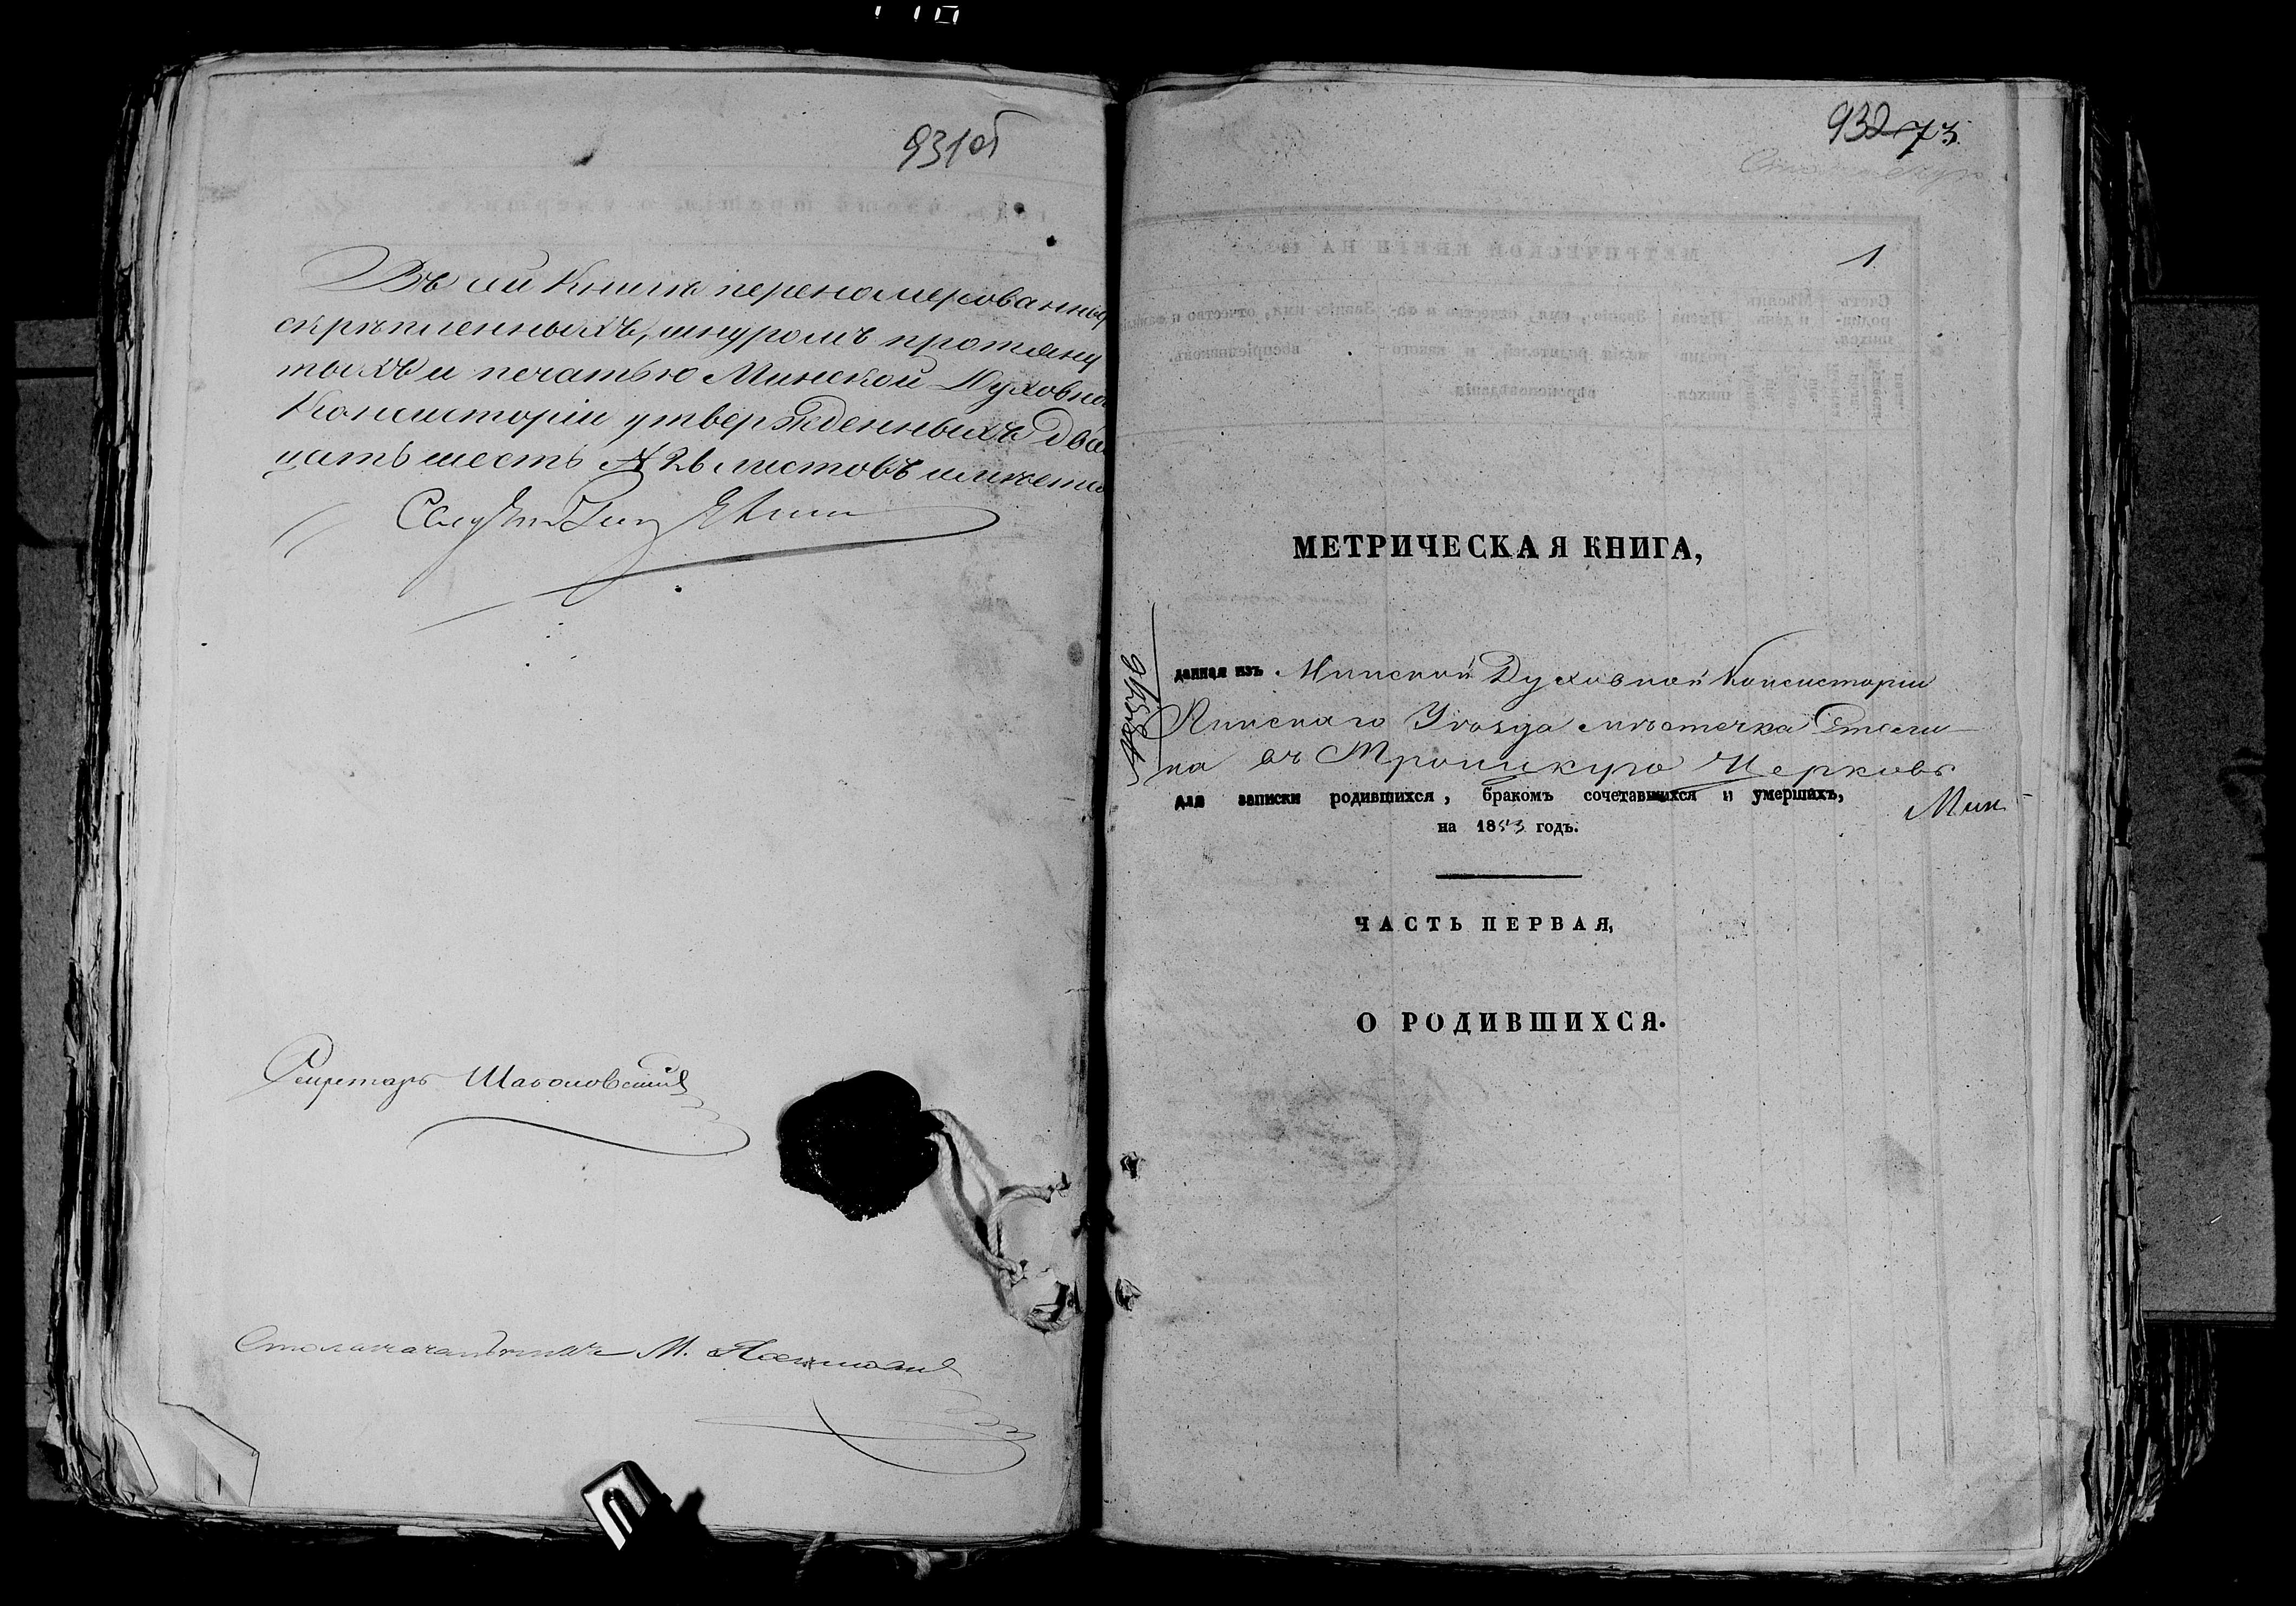 931об
Въ сей Книгѣ переномерованныхъ
скрѣпленныхъ, шнуромъ протяну
тыхъ и печатью Минской Духовной
Консисторіи утвержденныхъ два
цать шесть 26 листовъ имѣется
Секретарь
Столоначальникъ М.
932 73
1
МЕТРИЧЕСКАЯ КНИГА,
данная изъ Минской Духовной Консисторіи
Пинскаго Уѣзда мѣстечка Столи
на въ Троицкую Церковь
для записки родившихся, бракомъ сочетавшихся и умершихъ,
Мин
на 1853 годъ.
ЧАСТЬ ПЕРВАЯ,
О РОДИВШИХСЯ.